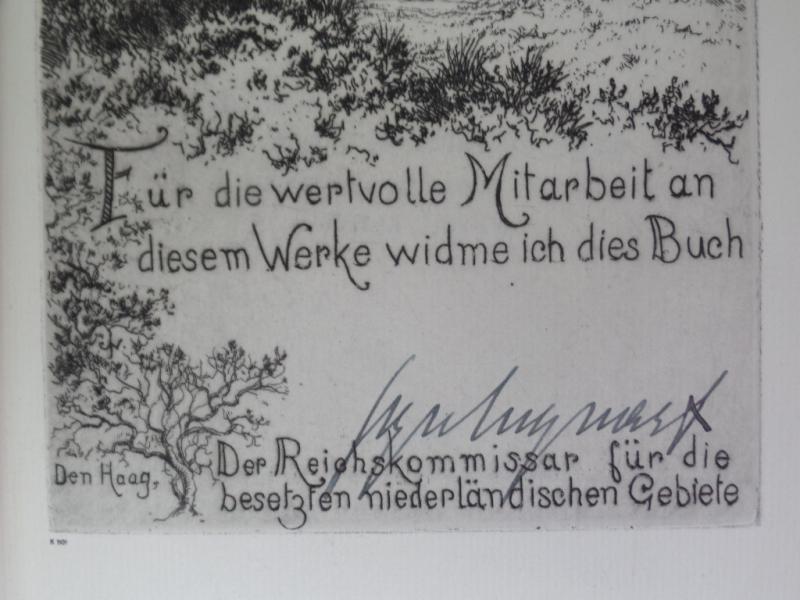 Für die wertvolle Mitarbeit an
diesem Werke widme ich dies Buch
Den Haag,
Der Reichskommissar für die
besetzten niederländischen Gebiete